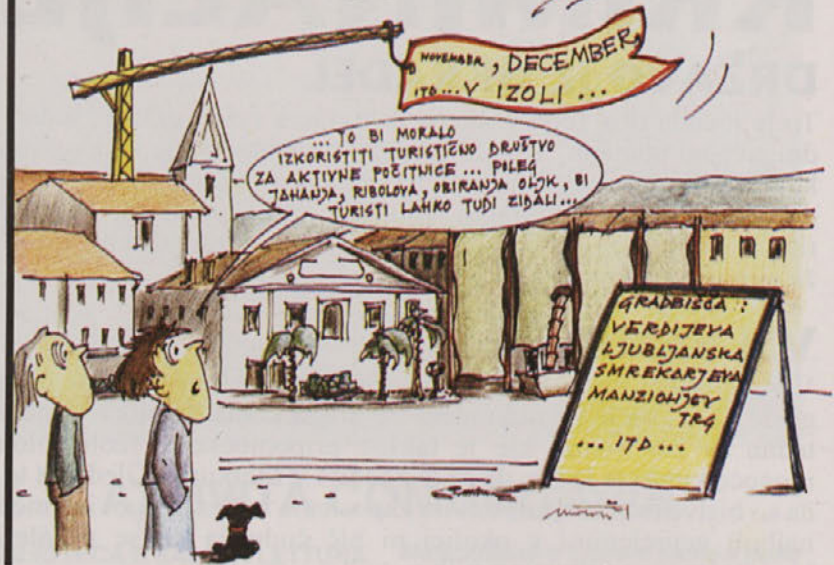 NOVEMBER, DECEMBER,
ITD...V IZOLI...
... TO BI MORALO
IZKORISTITI TURISTIČNO DRUŠTVO
ZA AKTIVNE POČITNICE ... POLEG
JAHANJA, RIBOLOVA, OBIRANJA OLJK, BI
TURISTI LAHKO TUDI ZIDALI...
GRADBIŠČA :
VERDIJEVA
LJUBLJANSKA
SMREKARJEVA
MANZIONIJEV
TRG
... ITD...